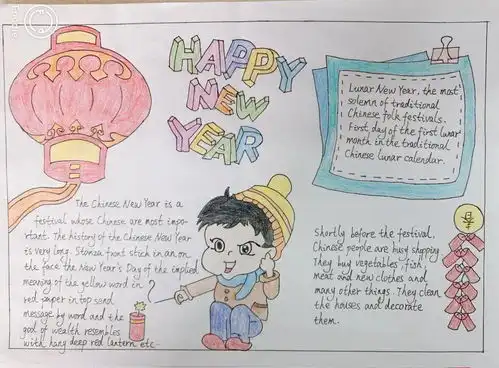 HAPPY
NEW
YEAR
Lunar New Year, the most
solemn of traditional
Chinese folk festivals.
First day of the first lunar
month in the traditional
Chinese lunar calendar.
The Chinese New Year is a
festival whose Chinese are most impor-
tant. The history of the Chinese New Year
is very long. Stanza front stick in an on
the face the New Year's Day of the implied
meaning of the yellow word in
red paper in top send
message by word and the
god of wealth resembles
with hang deep red lantern etc.
Shortly before the festival,
Chinese people are busy shopping
They buy vegetables, fish,
meat and new clothes and
many other things. They clean
the houses and decorate
them.